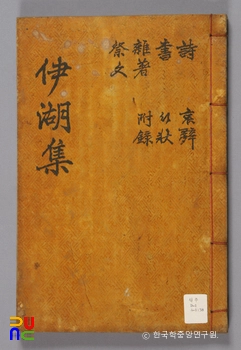 伊湖集
詩 哀辭
書 行狀
雜著 附錄
祭文
© 한국학중앙연구원